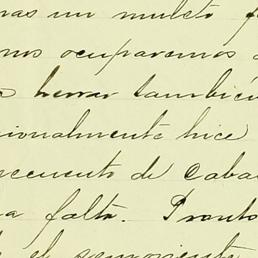 nas un muleto
nos ocuparemos
herrar también
cionalmente hice
recuento de caba
a falta. Pronto
el semoviente